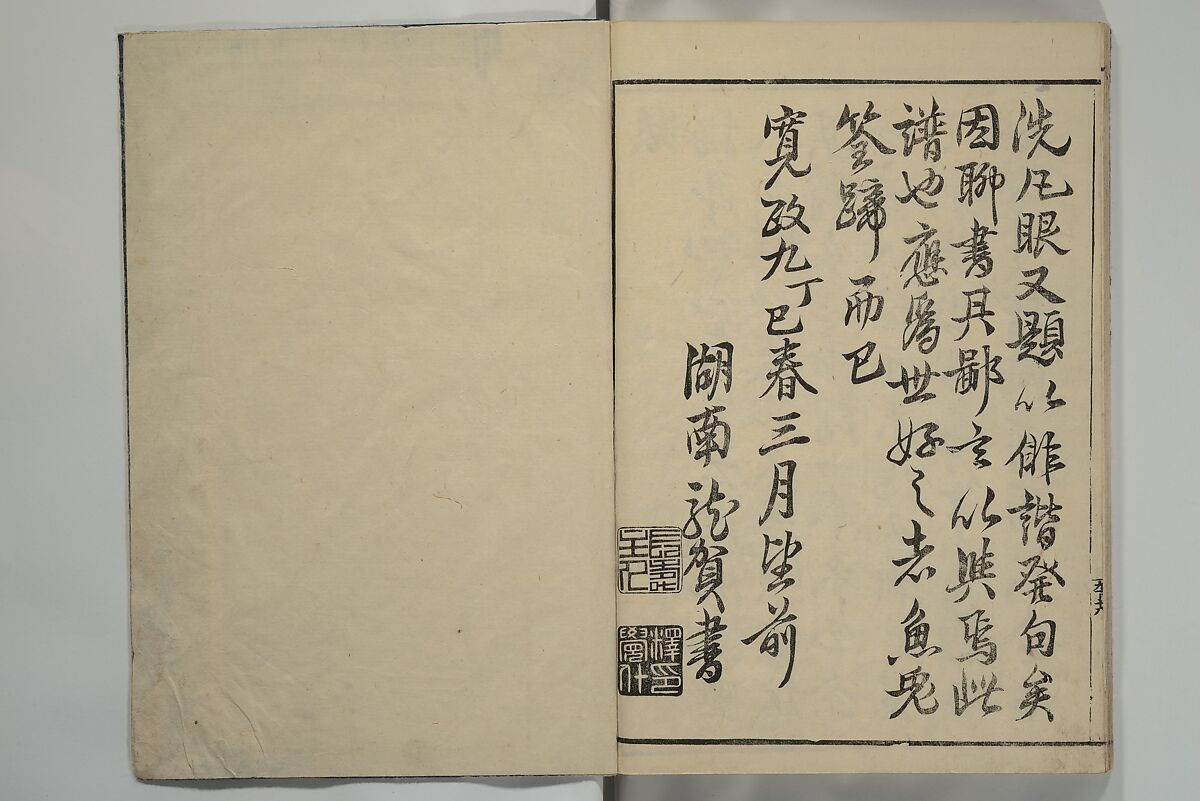 洗凡眼又題以俳諧発句矣
因聊書其鄙言以與焉此
譜也應爲世好之者魚兎
筌蹄而已
寛政九丁巳春三月望前
湖南龍賀書